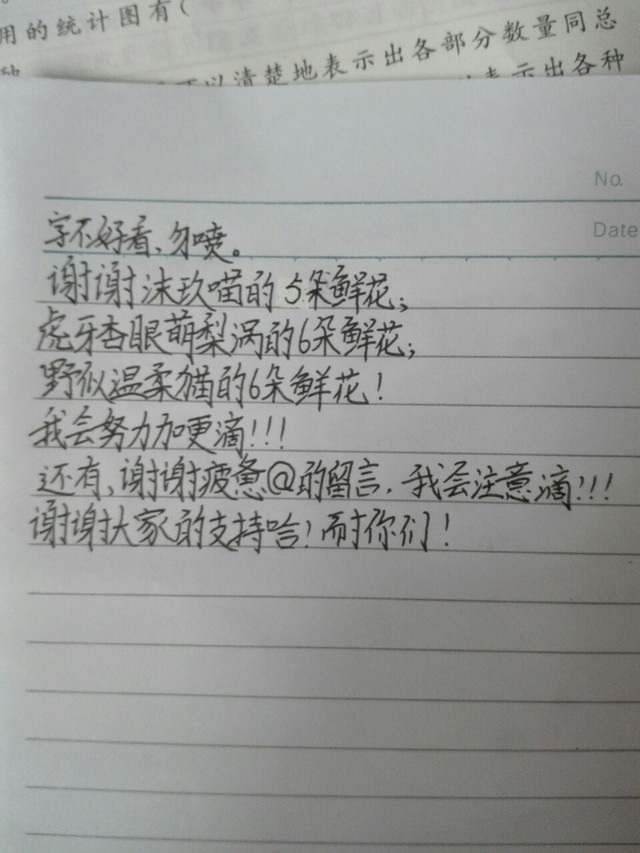 用的统计图有(
可以清楚地表示出各部分数量同总
表示出各种
No.
Date
字不好看、勿喷。
谢谢沫玖喵的5朵鲜花；
虎牙杏眼萌梨涡的6朵鲜花；
野似温柔猫的6朵鲜花！
我会努力加更滴!!!
还有,谢谢疲惫@的留言,我会注意滴!!!
谢谢大家的支持哈！耐你们！